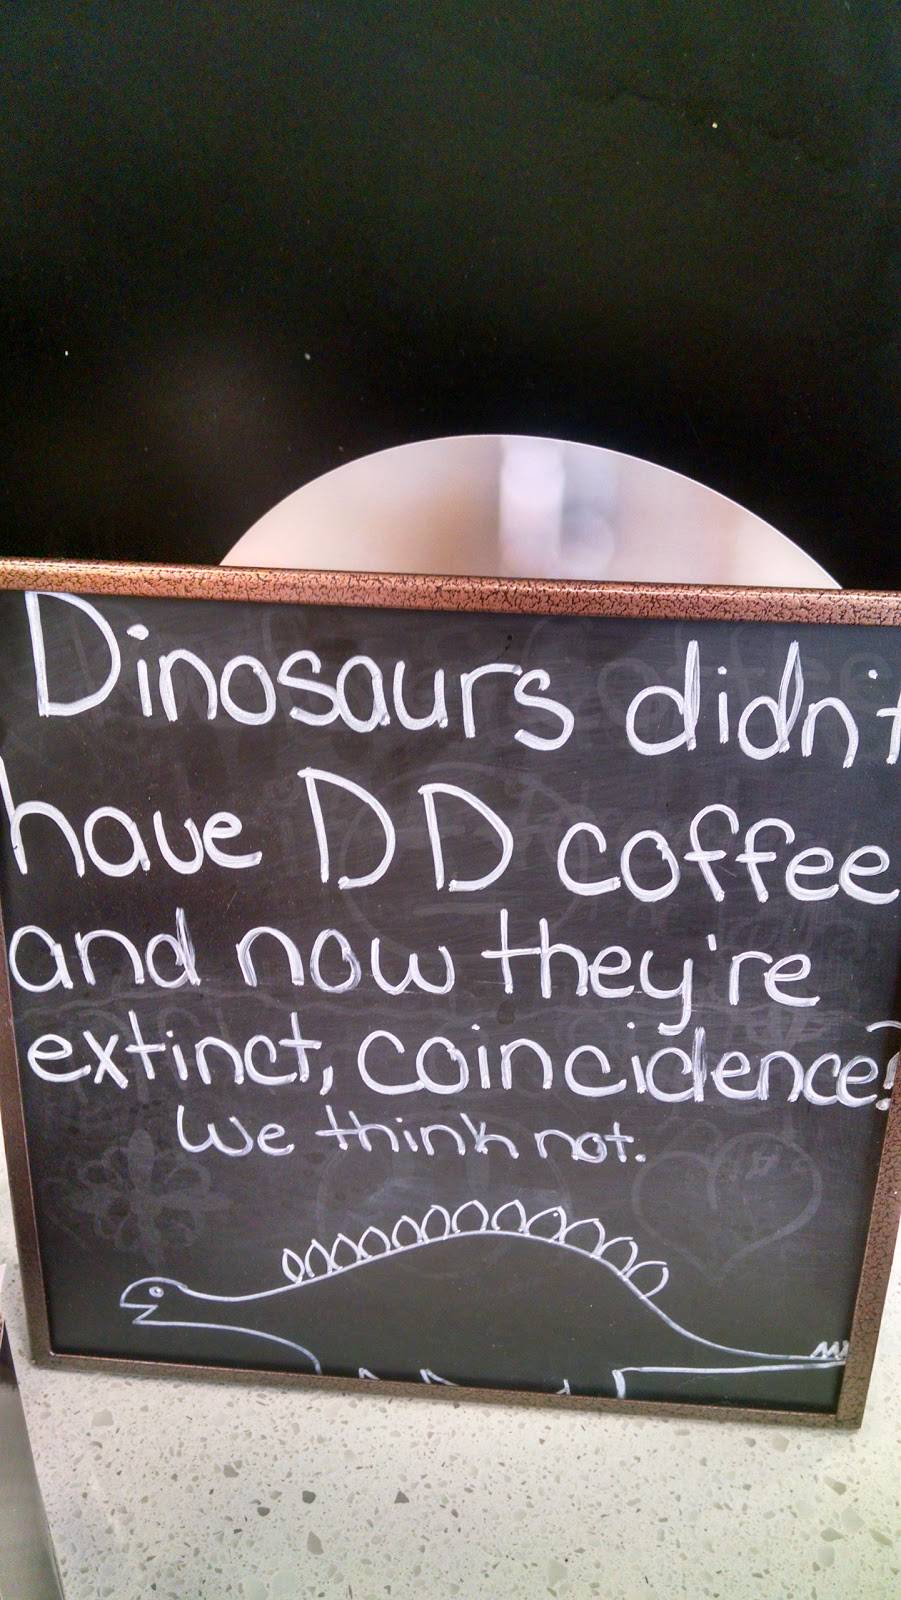 Dinosaurs didn't
have DD coffee
and now they're
extinct, coincidence?
We think not.